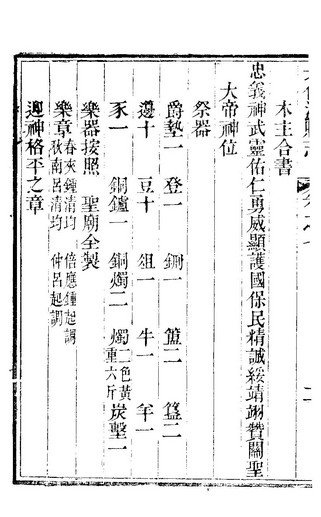 木主合書
忠義神武靈佑仁勇威顯護國保民精誠綏靖翊贊關聖
大帝神位
祭器
爵墊一 登一 鉶一 簠二 簋二
籩十 豆十 俎一 牛一 羊一
豕一 銅鑪一 銅燭二 燭二色黃重六斤 炭墼一
樂器按照 聖廟全製
樂章 春夾鍾清均 倍應鍾起調
秋南呂清均 仲呂起調
迎神格平之章